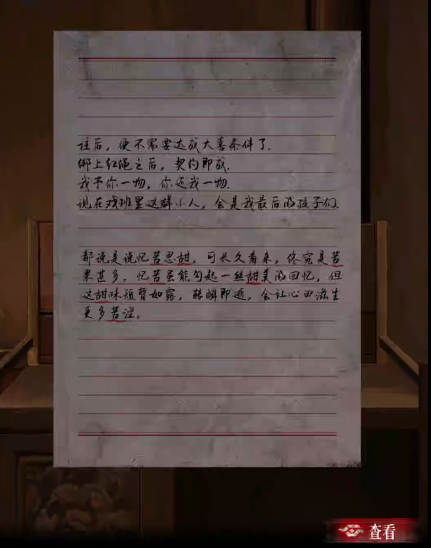 往后，便不需要达成大喜条件了.
绑上红绳之后，契约即成.
我予你一物，你还我一物.
现在戏班里这群小人，会是我最后的孩子们.
都说是说忆苦思甜，可长久看来，终究是苦
果甚多。忆苦虽能勾起一丝甜美的回忆，但
这甜味短暂如露，转瞬即逝，会让心田滋生
更多苦涩.
查看